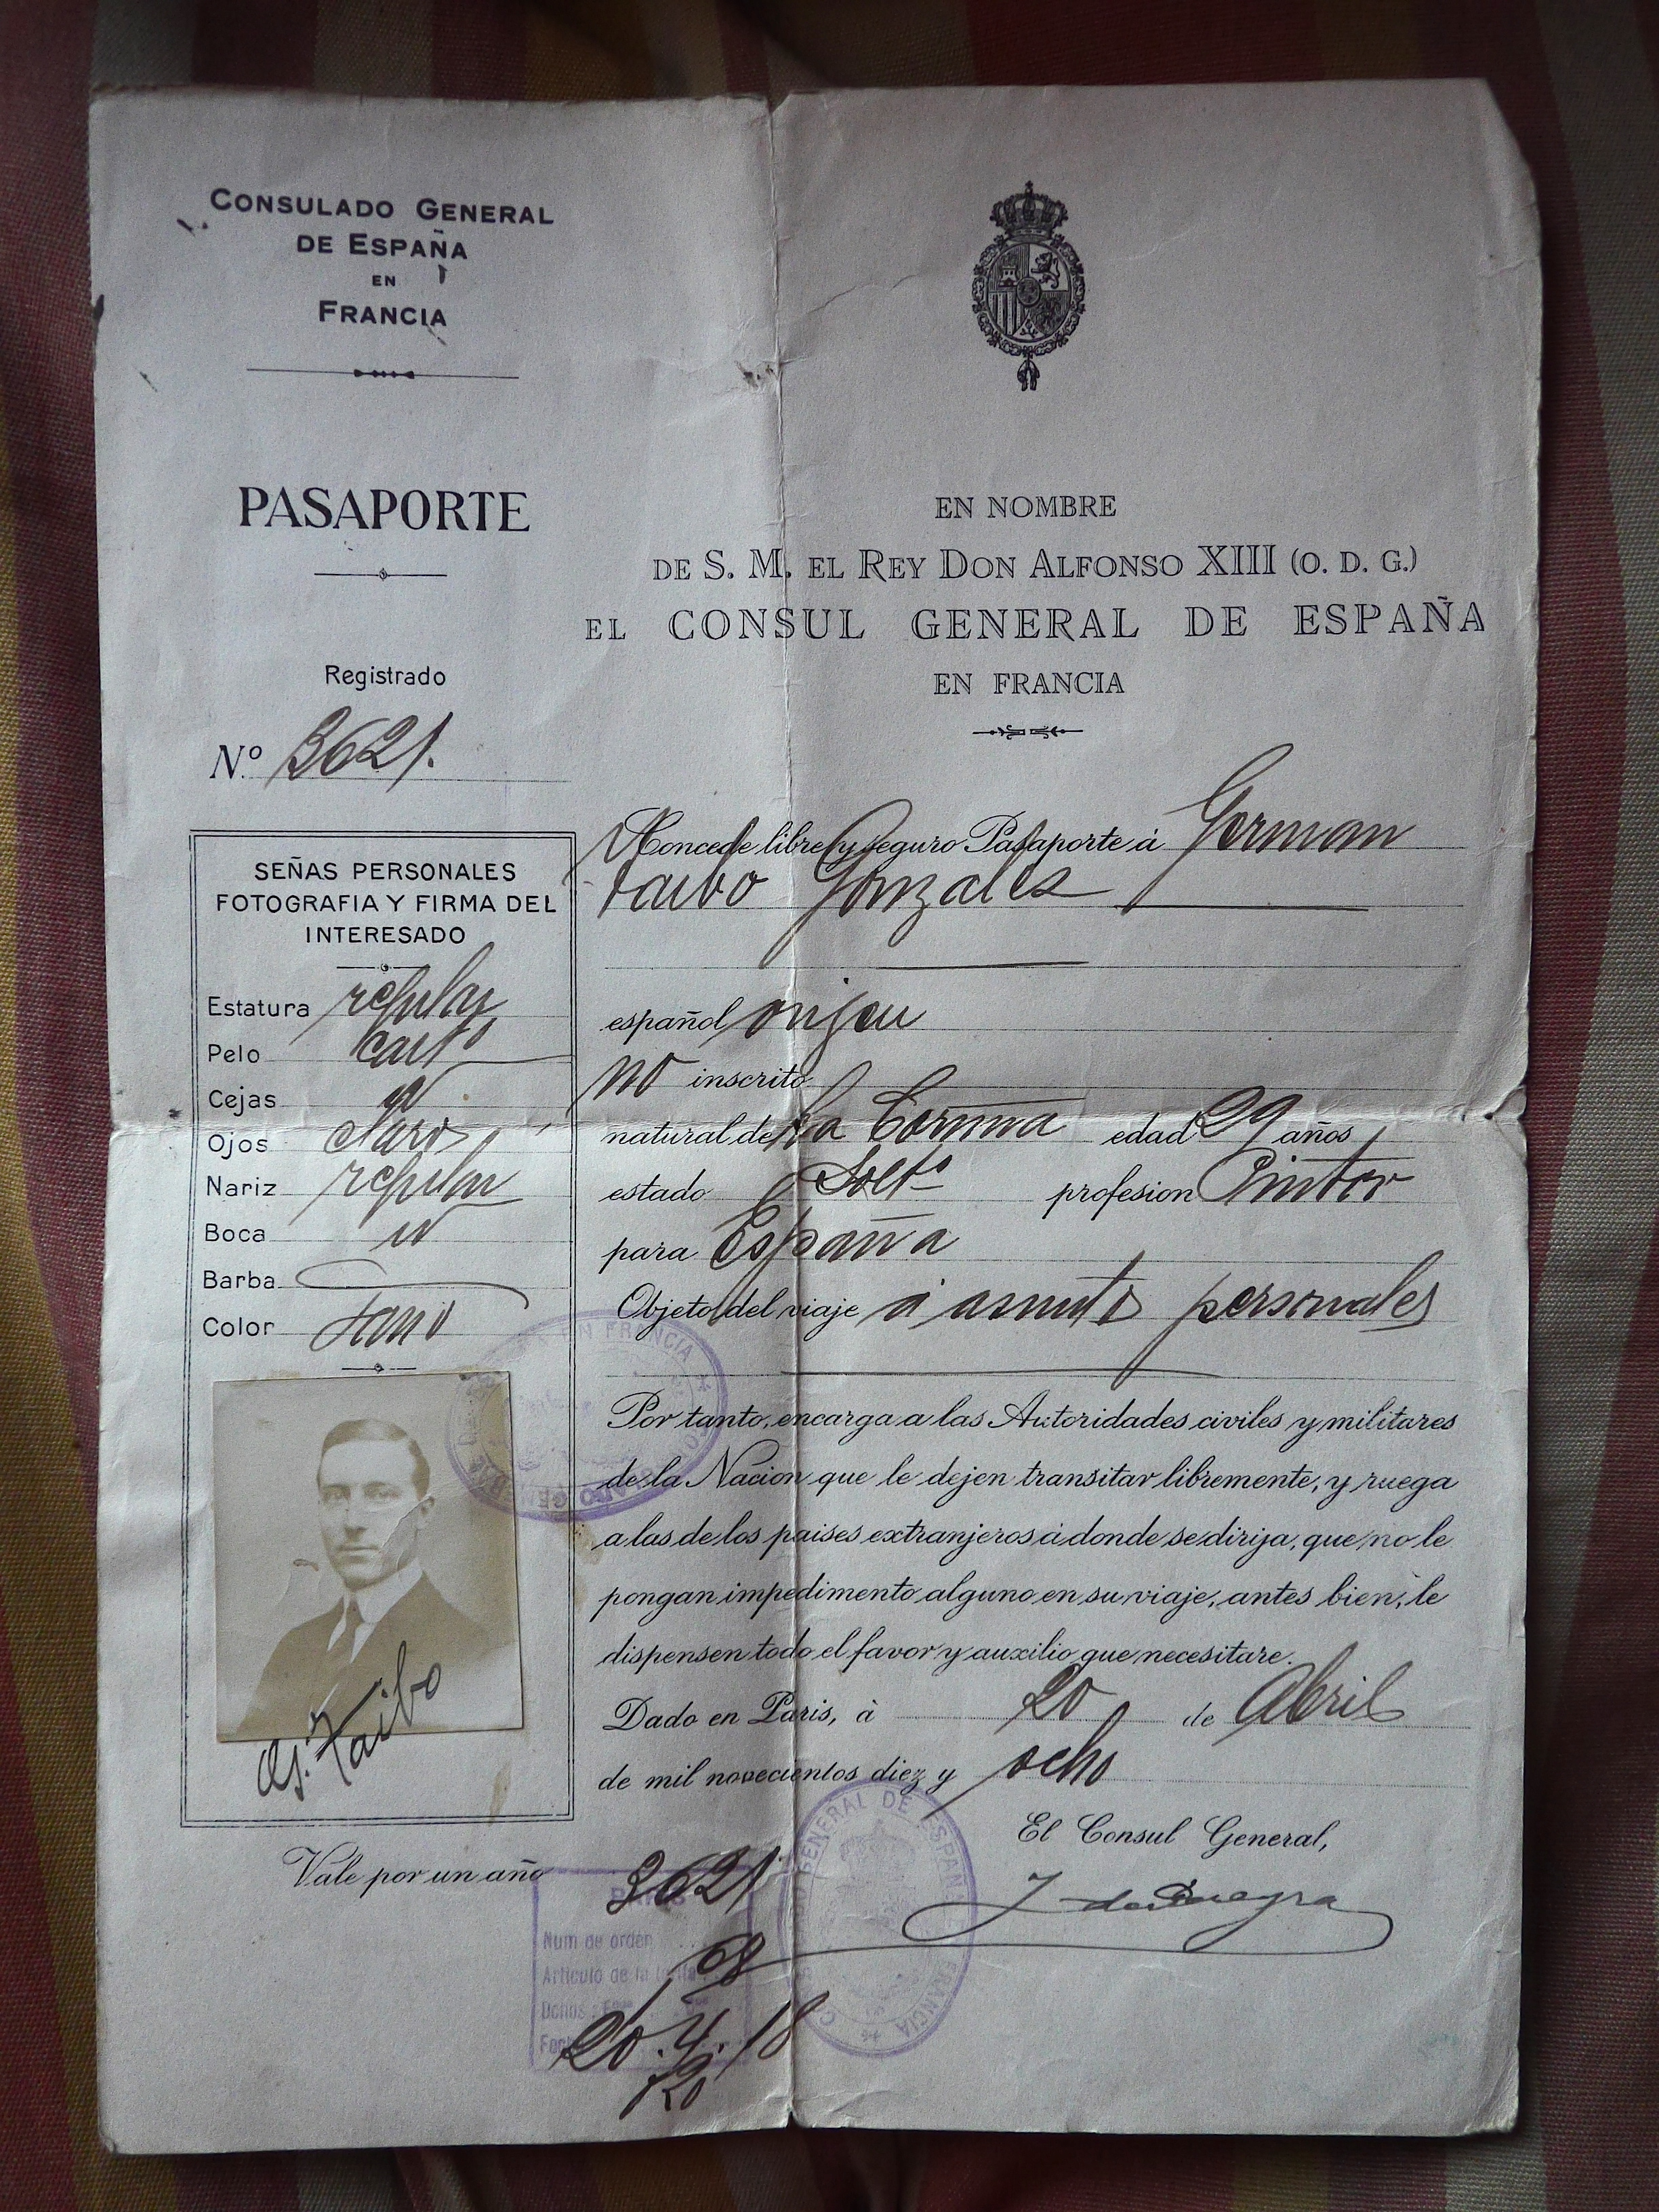 CONSULADO GENERAL
DE ESPAÑA
EN
FRANCIA
PASAPORTE
Registrado
N.º 3621.
SEÑAS PERSONALES
FOTOGRAFIA Y FIRMA DEL
INTERESADO
Estatura regular
Pelo cast.º
Cejas id
Ojos claros
Nariz regular
Boca id
Barba
Color sano
G. Taibo
Vale por un año
EN NOMBRE
DE S. M. EL REY DON ALFONSO XIII (Q. D. G.)
EL CONSUL GENERAL DE ESPAÑA
EN FRANCIA
Concede libre y seguro Pasaporte à German
Taibo Gonzales
español origen
no inscrito
natural de La Coruña edad 29 años
estado Solt.º profesion Pintor
para España
Objeto del viaje á asuntos personales
Por tanto, encarga a las Autoridades civiles y militares
de la Nacion que le dejen transitar libremente, y ruega
a las de los paises extranjeros à donde se dirija, que no le
pongan impedimento alguno en su viaje, antes bien, le
dispensen todo el favor y auxilio que necesitare.
Dado en Paris, à 20 de Abril
de mil novecientos diez y ocho
El Consul General,
PARIS
Num de orden 3621
Articulo de la 68
20.4.18
GENERAL DE ESPAÑA
FRANCIA
EN FRANCIA